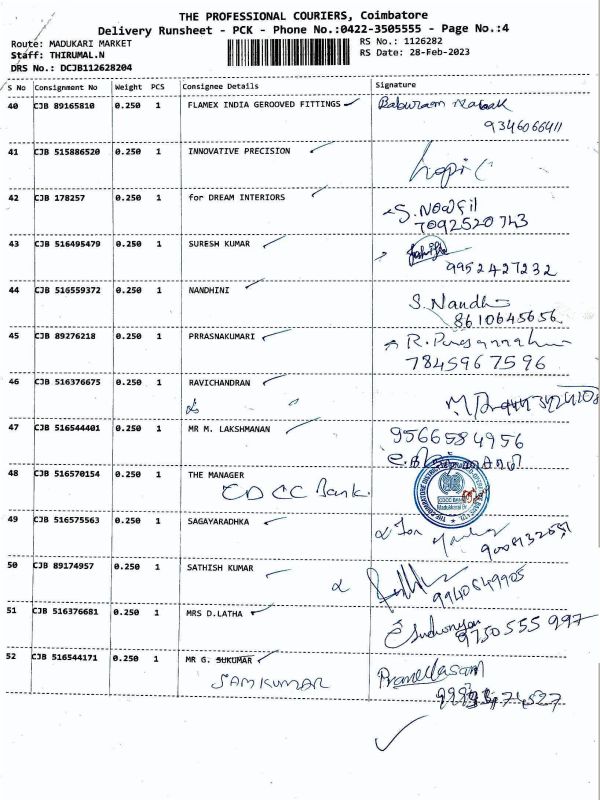 THE PROFESSIONAL COURIERS, Coimbatore
Delivery Runsheet - PCK - Phone No.:0422-3505555 - Page No.:4
Route: MADUKARI MARKET RS No.: 1126282
Staff: THIRUMAL.N RS Date: 28-Feb-2023
DRS No.: DCJB112628204
S No Consignment No Weight PCS Consignee Details Signature
40 CJB 89165810 0.250 1 FLAMEX INDIA GEROOVED FITTINGS
9346066411
41 CJB 515886520 0.250 1 INNOVATIVE PRECISION
42 CJB 178257 0.250 1 for DREAM INTERIORS S.
7092520743
43 CJB 516495479 0.250 1 SURESH KUMAR
9952427232
44 CJB 516559372 0.250 1 NANDHINI S. Nandhi
8610645656
45 CJB 89276218 0.250 1 PRRASNAKUMARI R.
7845967596
46 CJB 516376675 0.250 1 RAVICHANDRAN
47 CJB 516544401 0.250 1 MR M. LAKSHMANAN 9566584956
48 CJB 516570154 0.250 1 THE MANAGER
CDCC Bank.
CDCC BANK
49 CJB 516575563 0.250 1 SAGAYARADHKA For
50 CJB 89174957 0.250 1 SATHISH KUMAR
9940549905
51 CJB 516376681 0.250 1 MRS D.LATHA
9750555997
52 CJB 516544171 0.250 1 MR G. SUKUMAR
SAMKUMAR